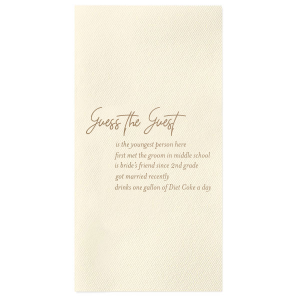 Guess the Guest
is the youngest person here
first met the groom in middle school
is bride's friend since 2nd grade
got married recently
drinks one gallon of Diet Coke a day